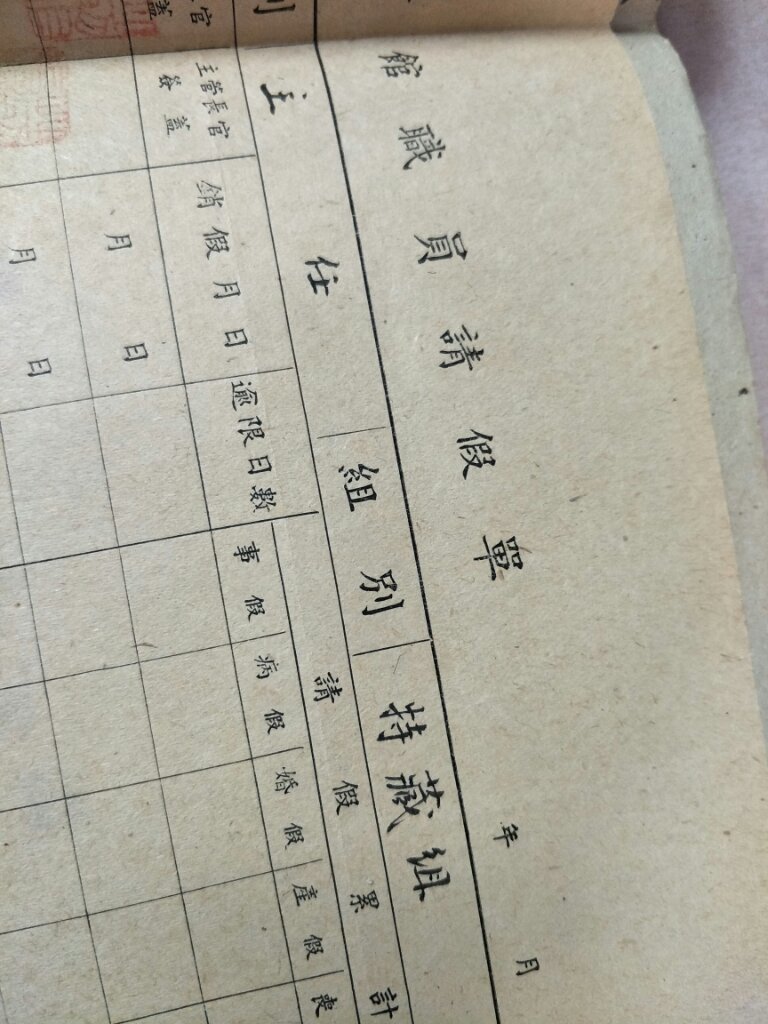 館職員請假單
年 月
別 主任 組別 特藏組
請假累計
主管長官簽蓋 銷假月日 逾限日數 事假 病假 婚假 產假 喪
月 日
月 日
官
蓋